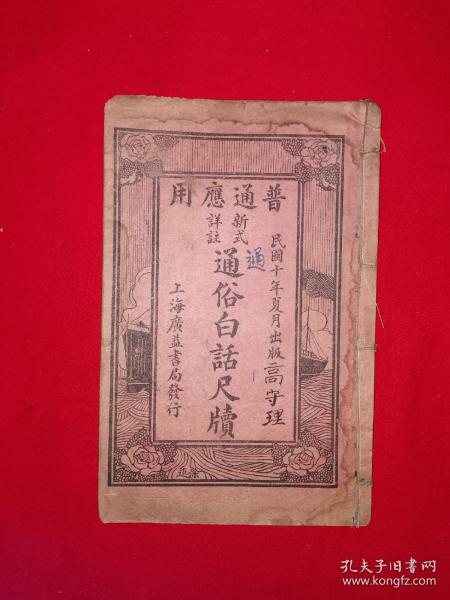 普通應用
民國十年夏月出版
高守理
新式
詳註
通
通俗白話尺牘
上海廣益書局發行
孔夫子旧书网
www.kongfz.com